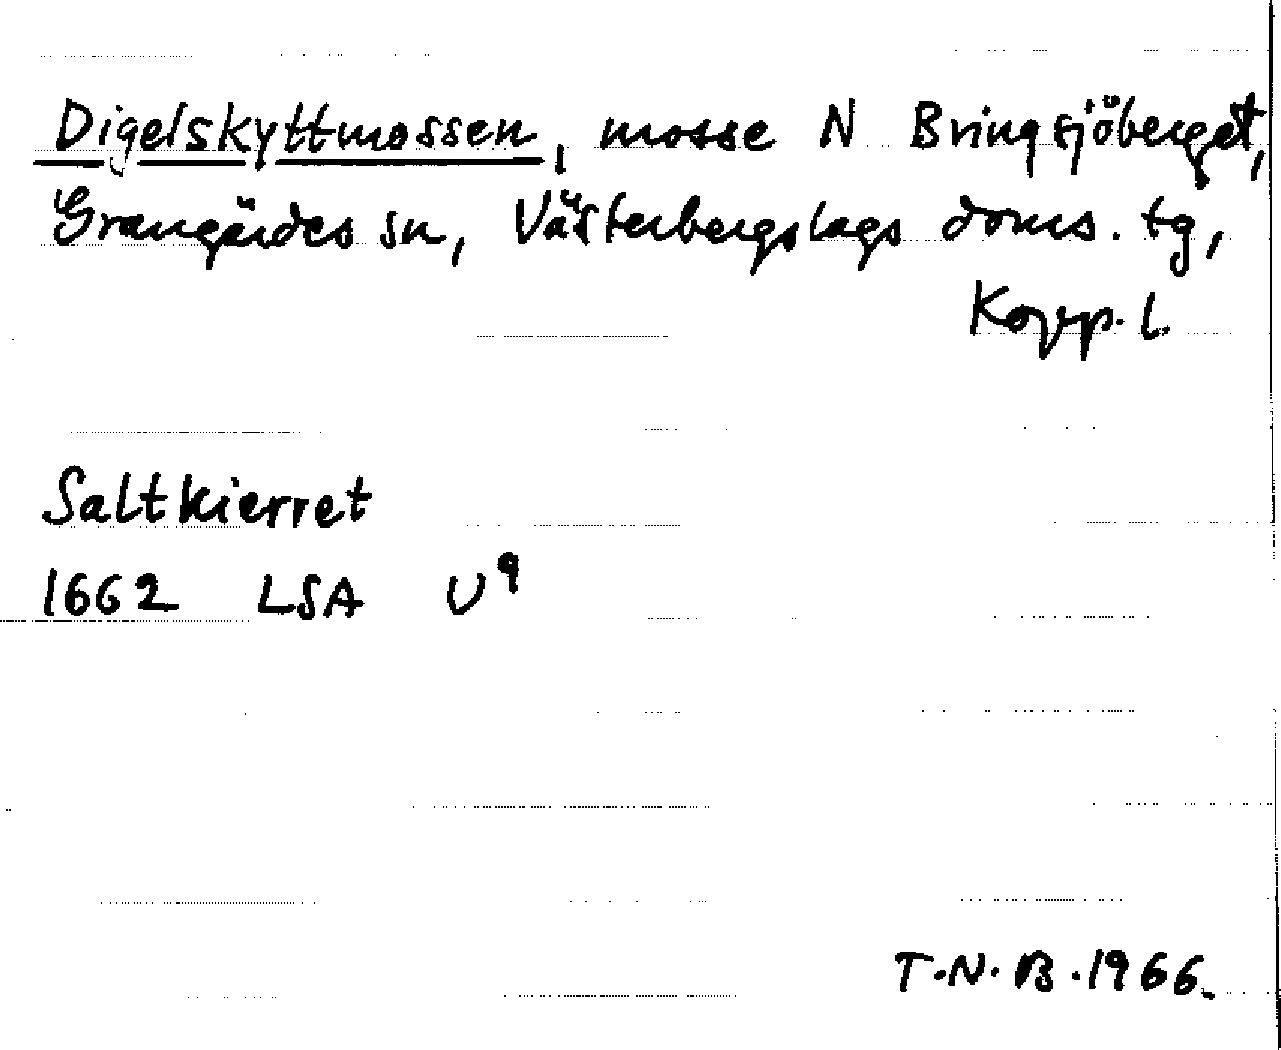 Digelskyttmossen, mosse N Bringsjöberget,
Grangärdes sn, Västerbergslags doms. tg,
Kopp. l.
Saltkierret
1662 LSA U⁹
T.N.B. 1966.